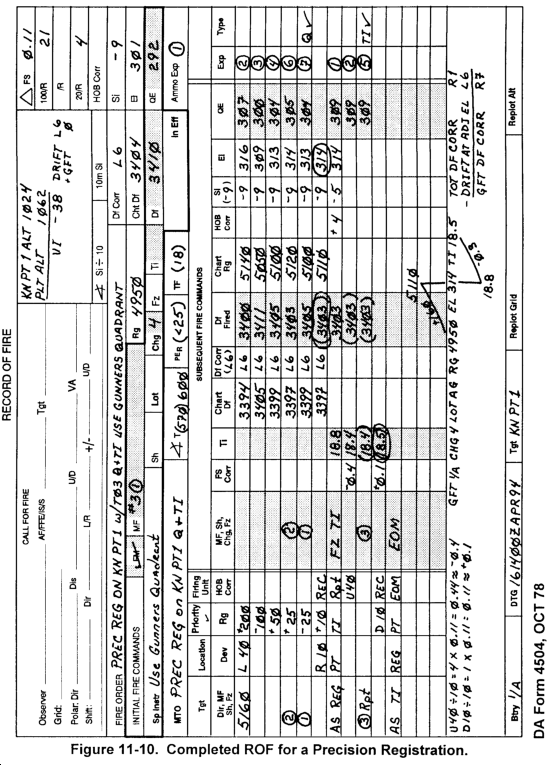 RECORD OF FIRE
CALL FOR FIRE
Observer AF/FFE/IS/S Tgt
Grid:
Polar: Dir Dis U/D VA
Shift: Dir L/R +/- U/D
KN PT 1 ALT 1024
PLT ALT 1062
VI - 38 DRIFT L6
+GFT Ø
∡ Si ÷ 10 10m Si
△ FS Ø.11
100/R 21
/R
20/R 4
HOB Corr
FIRE ORDER PREC REG ON KN PT 1 W/TØ3 Q+TI USE GUNNERS QUADRANT
Df Corr L6 Si - 9
INITIAL FIRE COMMANDS MF #3 ① Rg 495Ø Cht Df 34Ø4 El 3Ø1
Sp Instr Use Gunners Quadrant Sh Lot Chg 4 Fz Ti Df 341Ø QE 292
MTO PREC REG ON KN PT1 Q+TI ∡T(57Ø) 6ØØ PER (<25) TF (18) In Eff Ammo Exp ①
SUBSEQUENT FIRE COMMANDS
Tgt Location Priority Firing Unit
Dir, MF Sh, Fz Dev Rg HOB Corr MF, Sh, Chg, Fz FS Corr Ti Chart Df Df Corr (L6) Df Fired Chart Rg HOB Corr Si (-9) El QE Exp Type
516Ø L 4Ø +2ØØ 3394 L6 34ØØ 514Ø -9 316 3Ø7 ②
-1ØØ 34Ø5 L6 3411 5Ø5Ø -9 3Ø9 3ØØ ③
+5Ø 3399 L6 34Ø5 51ØØ -9 313 3Ø4 ④
② +25 ② 3397 L6 34Ø3 512Ø -9 314 3Ø5 ⑥
① -25 ① 3399 L6 34Ø5 51ØØ -9 313 3Ø4 ⑦ Q✓
R 1Ø +1Ø REC 3397 L6 (34Ø3) 511Ø -9 (314)
AS REG PT TI Rpt FZ TI 18.8 34Ø3 +4 -5 314 3Ø9 ①
U4Ø -Ø.4 18.4 (34Ø3) 3Ø9 ②
③ Rpt ③ (18.4) (34Ø3) 3Ø9 ⑤ TI✓
D 1Ø REC +Ø.1 (18.5)
AS TI REG PT EOM EOM
511Ø
+16Ø
U4Ø÷1Ø = 4 X Ø.11 = Ø.44 ≈ -Ø.4
D1Ø÷1Ø = 1 X Ø.11 = Ø.11 ≈ +Ø.1
GFT 1/A CHG 4 LOT AG RG 495Ø EL 314 TI 18.5
-Ø.3
18.8
TOT DF CORR R1
-DRIFT AT ADJ EL L6
GFT DF CORR R7
Btry 1/A DTG 1614ØØZAPR94 Tgt KN PT1 Replot Grid Replot Alt
DA Form 4504, OCT 78
Figure 11-10. Completed ROF for a Precision Registration.